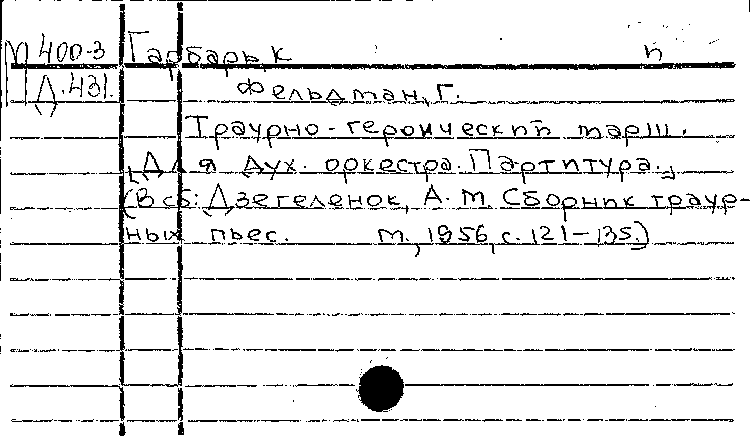 М 400-3 Гарбарь, К п
Д.431. Фельдман, Г.
Траурно-героический марш.
[Для дух. оркестра. Партитура.]
(В сб: Дзегеленок, А. М. Сборник траур-
ных пьес. М., 1956, с. 121-135.)